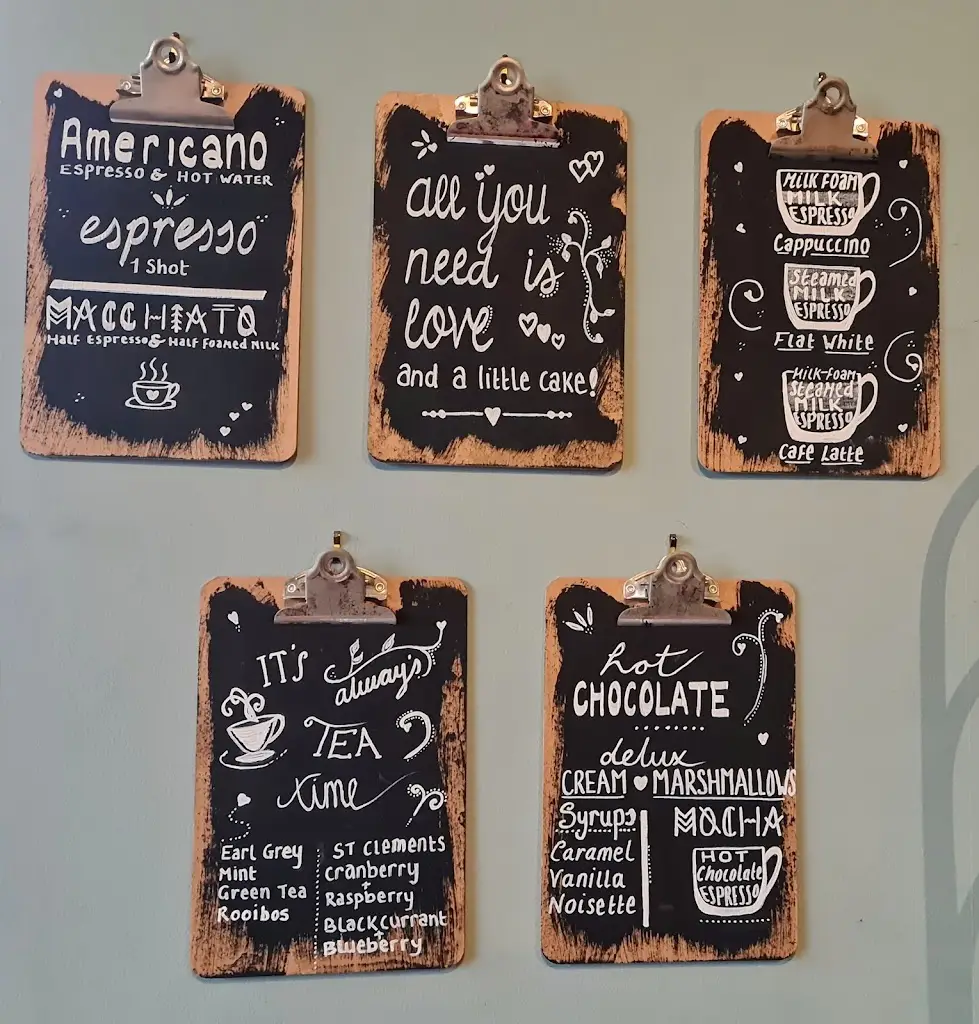 Americano
Espresso & HOT WATER
espresso
1 Shot
MACCHIATO
Half Espresso & Half Foamed Milk
all you
need is
love
and a little cake!
MILK FOAM
MILK
ESPRESSO
Cappuccino
Steamed
MILK
ESPRESSO
Flat White
MILK-FOAM
Steamed
MILK
ESPRESSO
Café Latte
IT'S
always
TEA
time
Earl Grey
Mint
Green Tea
Rooibos
ST Clements
cranberry
+
Raspberry
Blackcurrant
+
Blueberry
hot
CHOCOLATE
delux
CREAM MARSHMALLOWS
Syrups
Caramel
Vanilla
Noisette
MOCHA
HOT
Chocolate
ESPRESSO